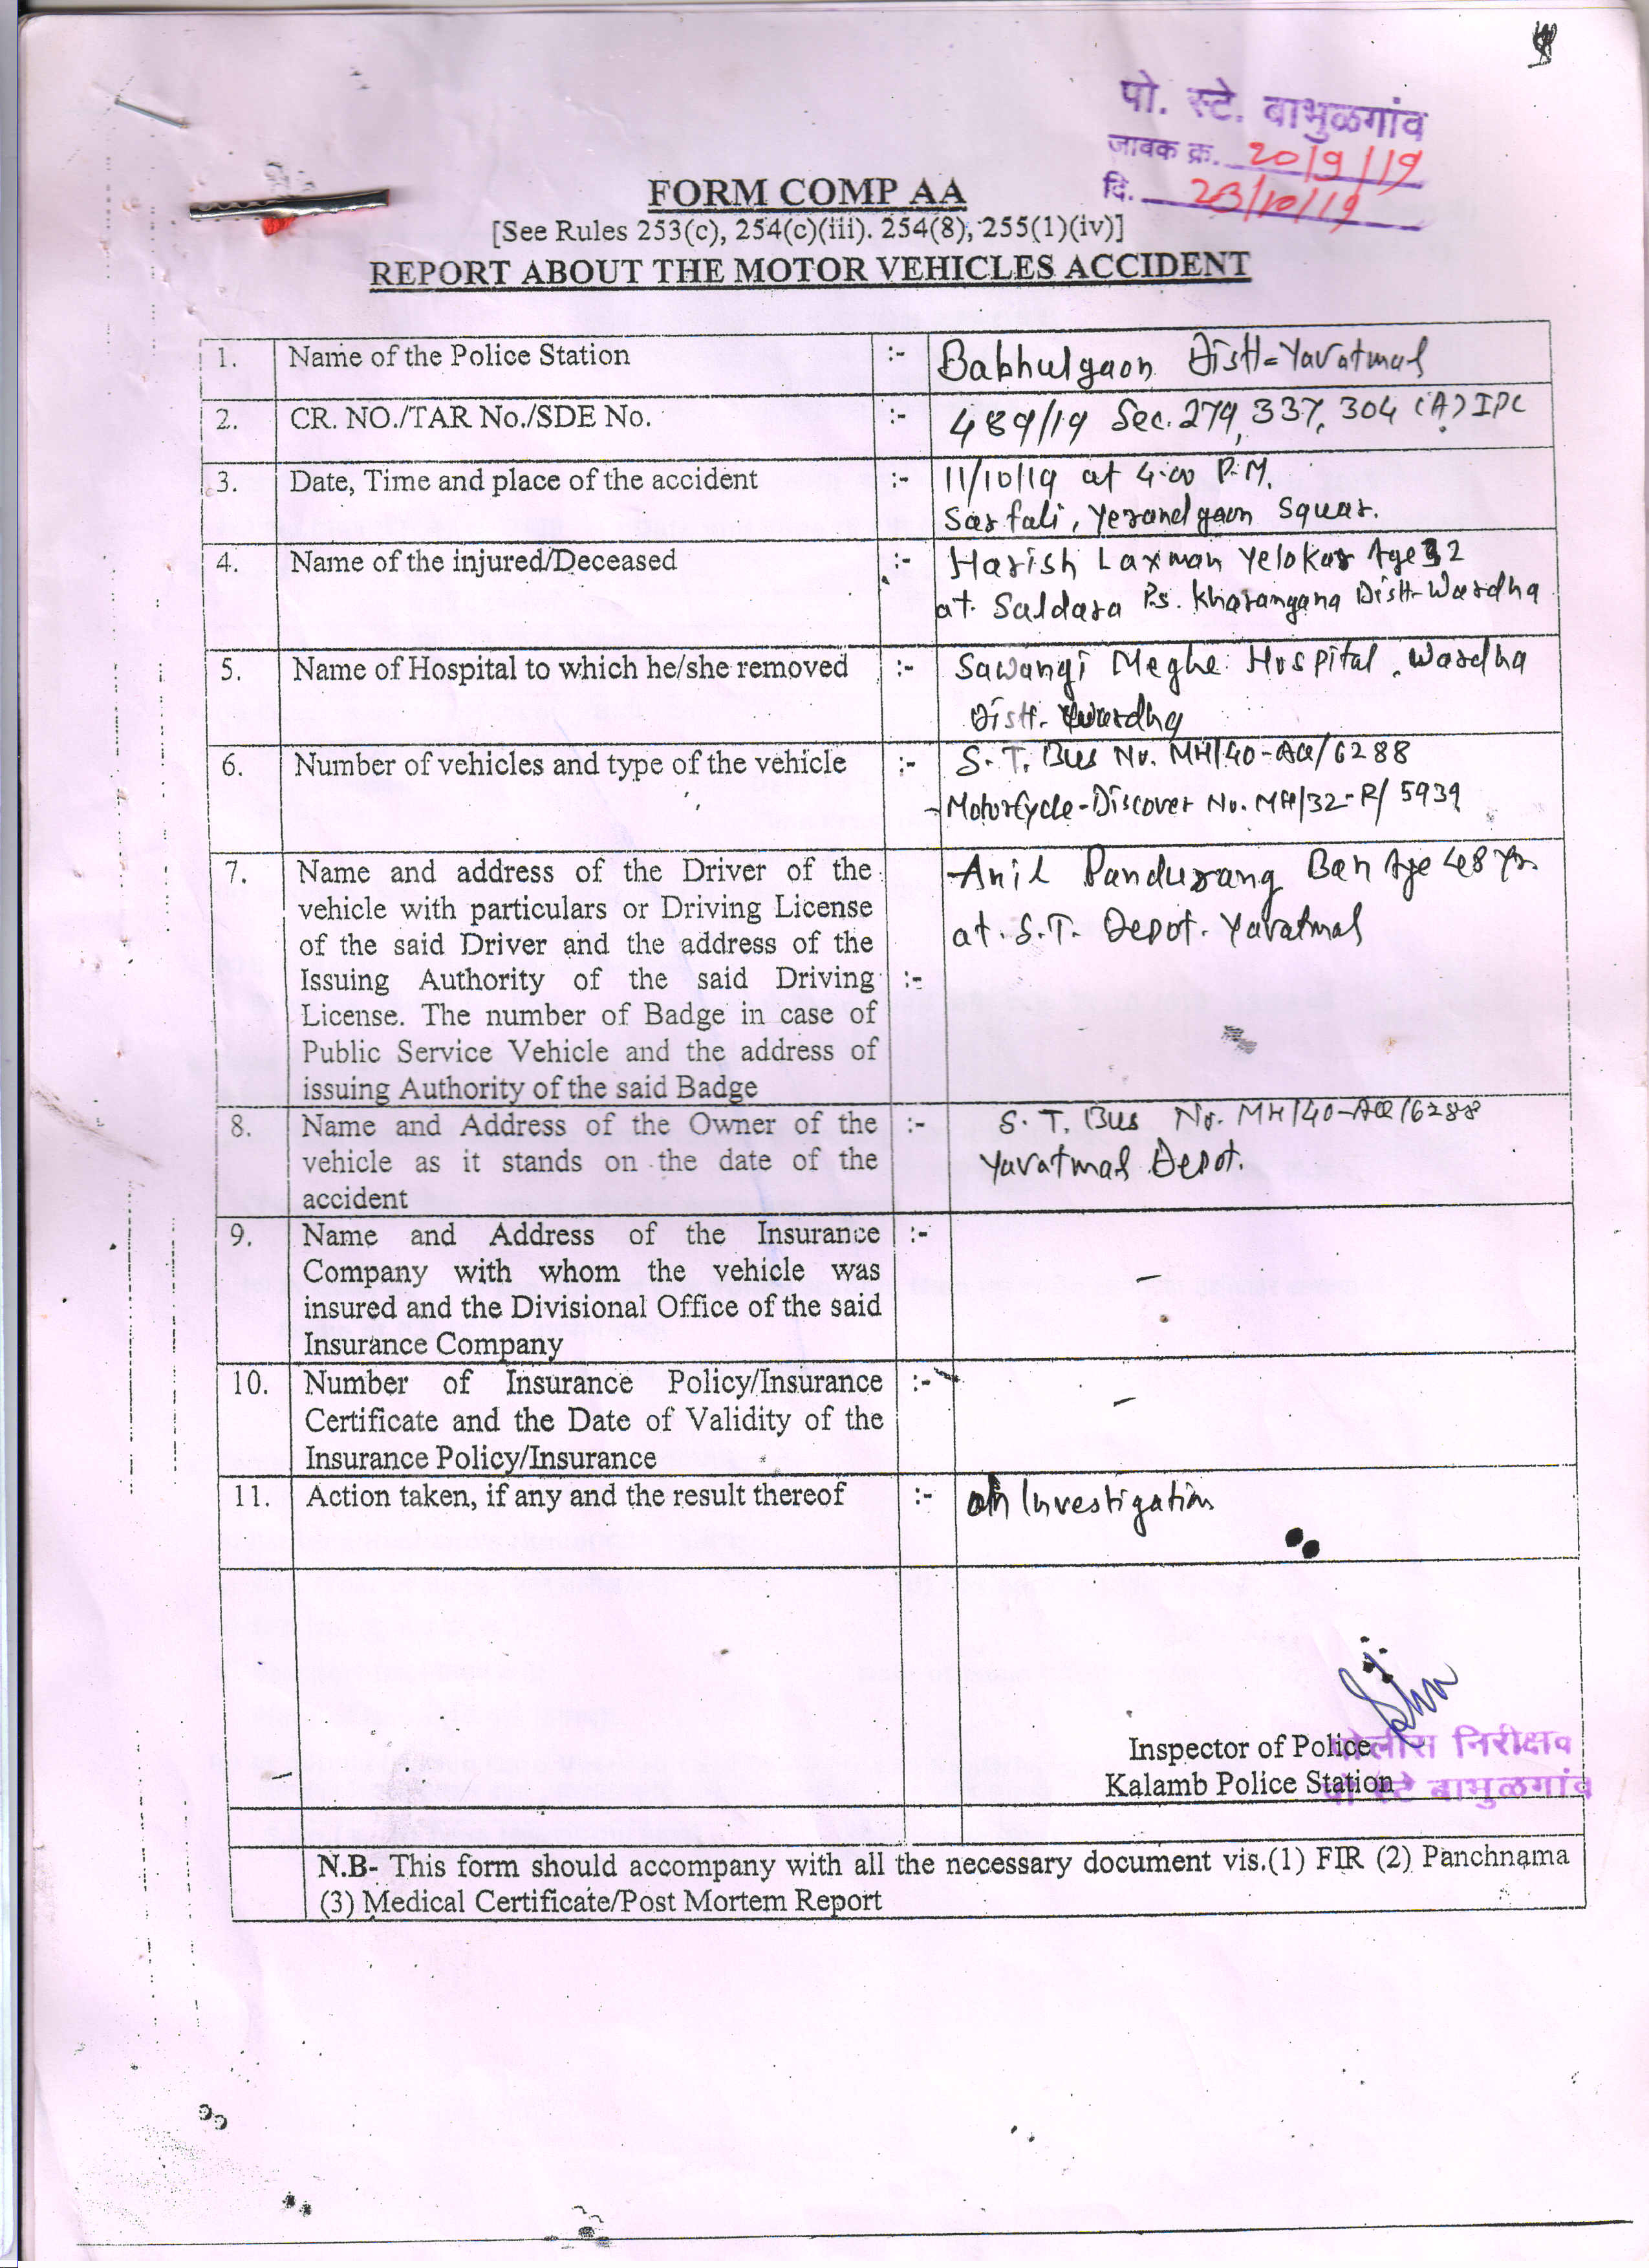 पो. स्टे. बाभुळगांव
जावक क्र. 2019/19
दि. 23/10/19
FORM COMP AA
[See Rules 253(c), 254(c)(iii). 254(8), 255(1)(iv)]
REPORT ABOUT THE MOTOR VEHICLES ACCIDENT
1. Name of the Police Station :- Babhulgaon Distt=Yavatmal
2. CR. NO./TAR No./SDE No. :- 489/19 Sec. 279, 337, 304 (A) IPC
3. Date, Time and place of the accident :- 11/10/19 at 4.00 P.M.
Sarfali, Yerandgaon Squar.
4. Name of the injured/Deceased :- Harish Laxman Yelokar Age 32
at. Saldara P.s. Kharangana Distt-Wardha
5. Name of Hospital to which he/she removed :- Sawangi Meghe Hospital, Wardha
Distt. Wardha
6. Number of vehicles and type of the vehicle :- S.T. Bus No. MH/40-AQ/6288
Motorcycle-Discover No. MH/32-R/5939
7. Name and address of the Driver of the Anil Pandurang Ban Age 48 Yr.
vehicle with particulars or Driving License
of the said Driver and the address of the at. S.T. Depot. Yavatmal
Issuing Authority of the said Driving :-
License. The number of Badge in case of
Public Service Vehicle and the address of
issuing Authority of the said Badge
8. Name and Address of the Owner of the :- S.T. Bus No. MH/40-AQ/6288
vehicle as it stands on the date of the Yavatmal Depot.
accident
9. Name and Address of the Insurance :-
Company with whom the vehicle was –
insured and the Divisional Office of the said
Insurance Company
10. Number of Insurance Policy/Insurance :-
Certificate and the Date of Validity of the –
Insurance Policy/Insurance
11. Action taken, if any and the result thereof :- on Investigation
Inspector of Police पोलीस निरीक्षक
Kalamb Police Station पो स्टे बाभुळगांव
N.B- This form should accompany with all the necessary document vis.(1) FIR (2) Panchnama
(3) Medical Certificate/Post Mortem Report